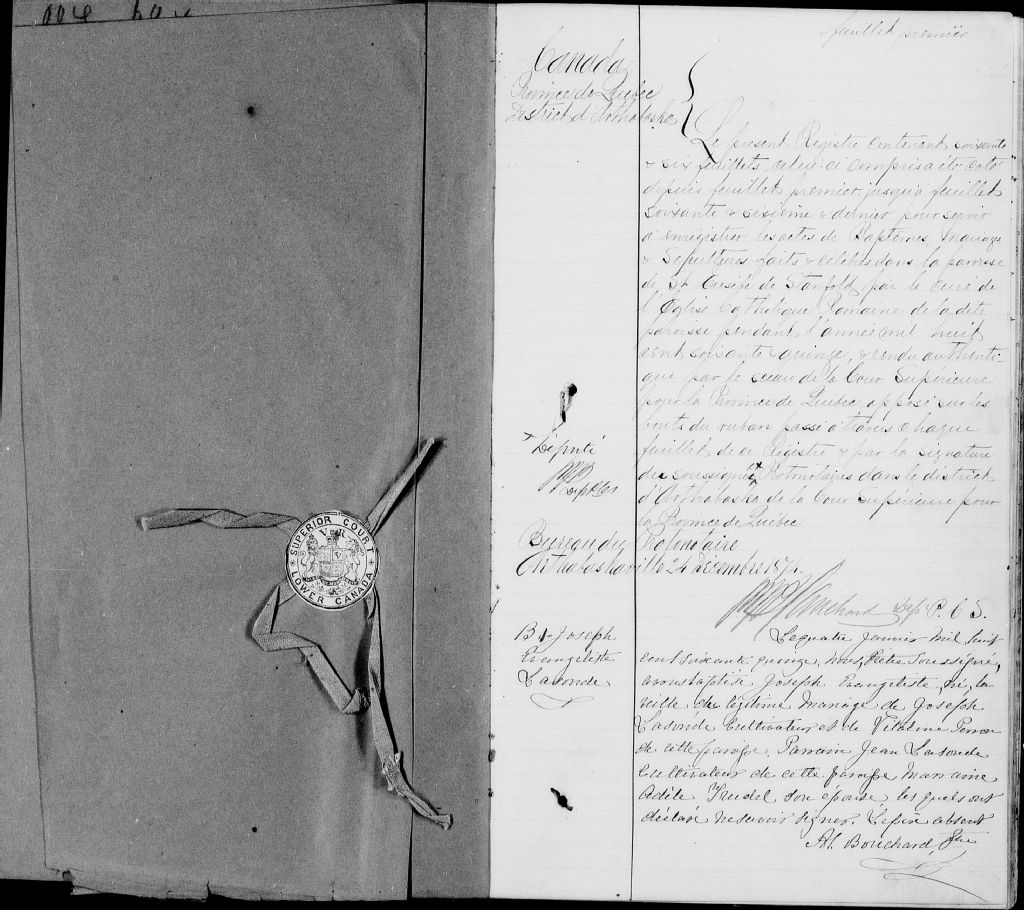 feuillet premier
Canada
Province de Québec
District d'Arthabaska
Le présent Régistre contenant soixante
& six feuillets, celui-ci compris a été coté
depuis feuillet premier, jusqu'à feuillet
soixante & sixième & dernier, pour servir
à enregistrer les actes de Baptêmes, Mariages
& Sépultures faits & célébrés dans la paroisse
de St Eusèbe de Stanfold par le curé de
l'Eglise Catholique Romaine de la dite
paroisse pendant l'année mil huit
cent soixante & quinze, & rendu authenti-
que par le sceau de la Cour Supérieure
pour la Province de Québec, apposé sur les
bouts du ruban passé à travers chaque
feuillet de ce Régistre & par la signature
du soussigné Protonotaire dans le district
d'Arthabaska de la Cour Supérieure pour
la Province de Québec
Député
Bureau du Protonotaire
Arthabaskaville 24 décembre 1874.
Bouchard Dep. P. C. S.
SUPERIOR COURT
V R
LOWER CANADA
B 1- Joseph
Evangeliste
Lasonde
Le quatre Janvier mil huit
cent soixante quinze, nous, Prêtre soussigné,
avons baptisé Joseph Evangeliste, né, la
veille du légitime mariage de Joseph
Lasonde Cultivateur et de Vitaline Perron
de cette paroisse. Parrain Jean Lasonde
Cultivateur de cette paroisse Marraine
Adèle Trudel son épouse, les quels ont
déclaré ne savoir signer. Le père absent
Bouchard, Ptre